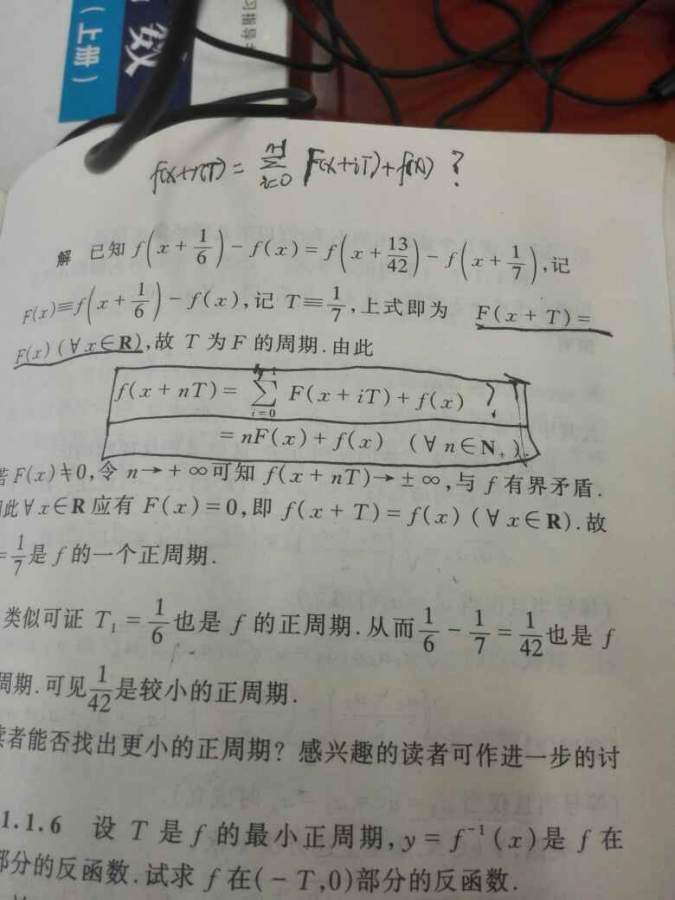 习指导
数
(上册)
f(x+nT) = ∑_{i=0}^{n-1} F(x+iT)+f(x) ?
解 已知 f(x+1/6)-f(x)=f(x+13/42)-f(x+1/7),记
F(x)≡f(x+1/6)-f(x),记 T≡1/7,上式即为 F(x+T)=
F(x)(∀x∈R),故 T 为 F 的周期.由此
f(x+nT)=∑_{i=0}^{n-1} F(x+iT)+f(x) ?
=nF(x)+f(x) (∀n∈N₊).
若 F(x)≢0,令 n→+∞可知 f(x+nT)→±∞,与 f 有界矛盾.
因此∀x∈R 应有 F(x)=0,即 f(x+T)=f(x)(∀x∈R).故
=1/7是 f 的一个正周期.
类似可证 T₁=1/6也是 f 的正周期.从而1/6-1/7=1/42也是 f
周期.可见1/42是较小的正周期.
读者能否找出更小的正周期?感兴趣的读者可作进一步的讨
1.1.6 设 T 是 f 的最小正周期,y=f⁻¹(x)是 f 在
部分的反函数.试求 f 在(-T,0)部分的反函数.